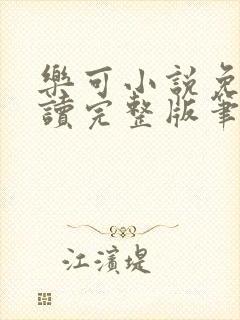 樂可小說免
讀完整版筆
江濱堤